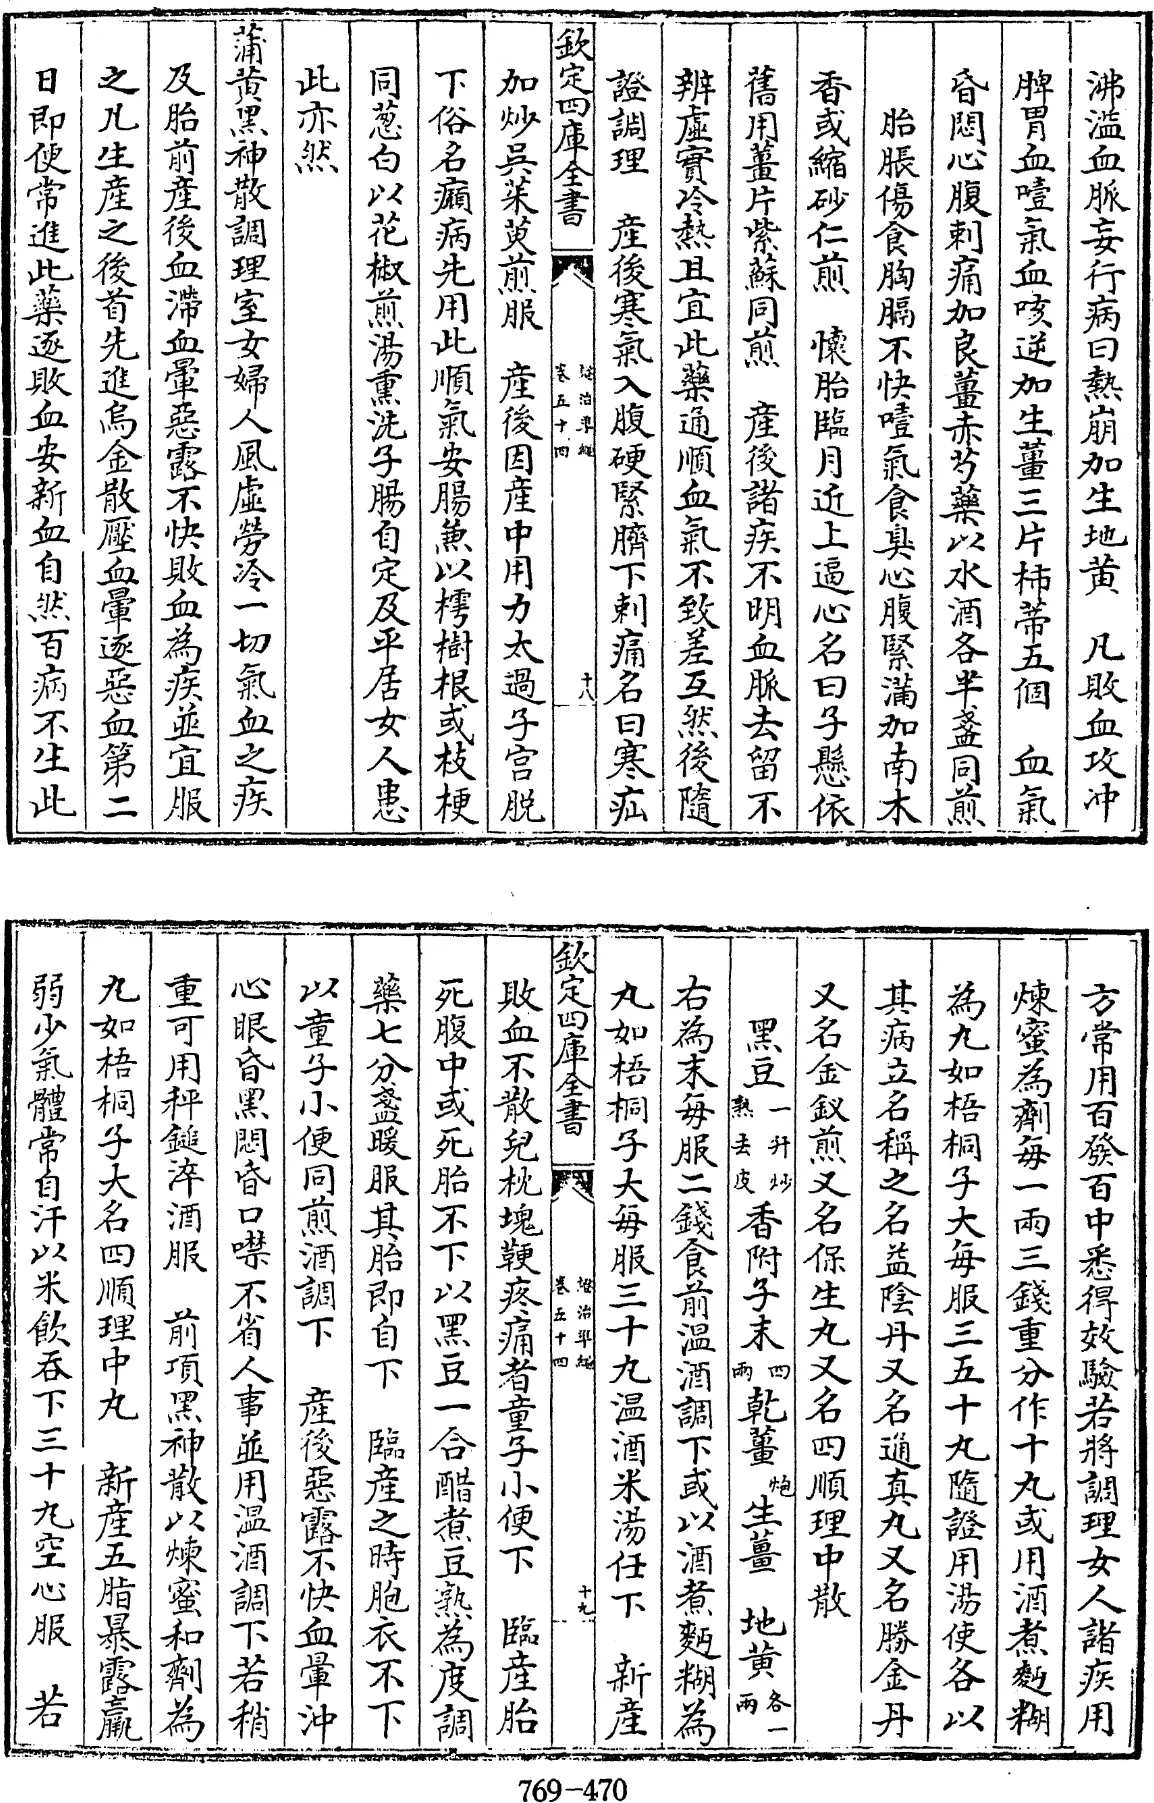 沸溢血脈妄行病曰熱崩加生地黄　凡敗血攻冲
脾胃血噎氣血咳逆加生薑三片柿蒂五個　血氣
昏悶心腹刺痛加良薑赤芍藥以水酒各半盞同煎
胎脹傷食胸膈不快噎氣食臭心腹緊滿加南木
香或縮砂仁煎　懷胎臨月近上逼心名曰子懸依
舊用薑片紫蘇同煎　產後諸疾不明血脈去留不
辨虛實冷熱且宜此藥通順血氣不致差互然後隨
證調理　產後寒氣入腹硬緊臍下刺痛名曰寒疝
欽定四庫全書
證治準繩
卷五十四
十八
加炒吳茱萸煎服　產後因產中用力太過子宮脱
下俗名癩病先用此順氣安腸兼以樗樹根或枝梗
同葱白以花椒煎湯熏洗子腸自定及平居女人患
此亦然
蒲黄黑神散調理室女婦人風虛勞冷一切氣血之疾
及胎前產後血滯血暈惡露不快敗血為疾並宜服
之凡生產之後首先進烏金散壓血暈逐惡血第二
日即便常進此藥逐敗血安新血自然百病不生此
方常用百發百中悉得效驗若將調理女人諸疾用
煉蜜為劑每一兩三錢重分作十丸或用酒煮麪糊
為丸如梧桐子大每服三五十丸隨證用湯使各以
其病立名稱之名益陰丹又名通真丸又名勝金丹
又名金釵煎又名保生丸又名四順理中散
黑豆一升炒熟去皮香附子末四兩乾薑炮生薑　地黄各一兩
右為末每服二錢食前温酒調下或以酒煮麪糊為
丸如梧桐子大每服三十丸温酒米湯任下　新產
欽定四庫全書
證治準繩
卷五十四
十九
敗血不散兒枕塊鞕疼痛者童子小便下　臨產胎
死腹中或死胎不下以黑豆一合醋煮豆熟為度調
藥七分盞暖服其胎即自下　臨產之時胞衣不下
以童子小便同煎酒調下　產後惡露不快血暈沖
心眼昏黑悶昏口噤不省人事並用温酒調下若稍
重可用秤鎚淬酒服　前項黑神散以煉蜜和劑為
丸如梧桐子大名四順理中丸　新產五脂暴露羸
弱少氣體常自汗以米飲吞下三十丸空心服　若
769-470